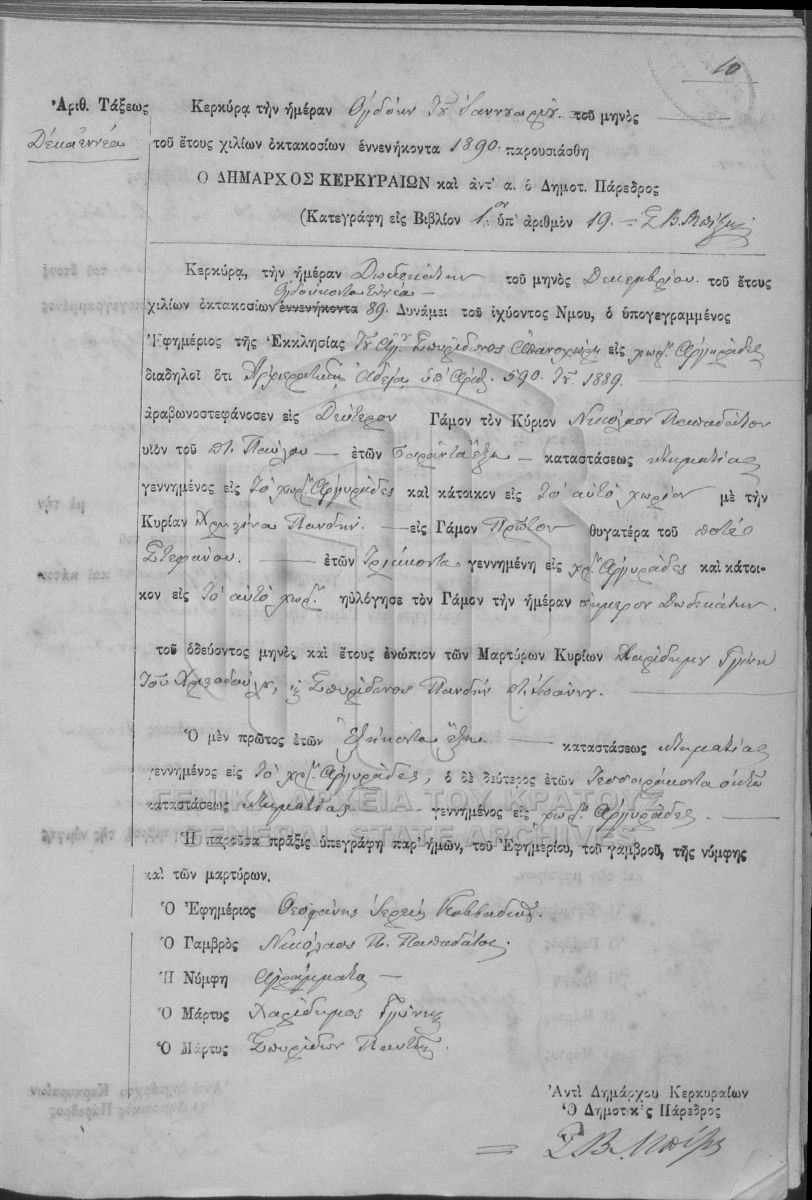 10
Ἀριθ. Τάξεως
Δέκα ἐννέα
Κερκύρᾳ τὴν ἡμέραν Ὀγδόην τοῦ Ἰαννουαρίου τοῦ μηνὸς
τοῦ ἔτους χιλίων ὀκτακοσίων ἐννενήκοντα 1890. παρουσιάσθη
Ὁ ΔΗΜΑΡΧΟΣ ΚΕΡΚΥΡΑΙΩΝ καὶ ἀντ' α. ὁ Δημοτ. Πάρεδρος
(Κατεγράφη εἰς Βιβλίον 1ον ὑπ' ἀριθμὸν 19.
Κερκύρᾳ, τὴν ἡμέραν Δωδεκάτην τοῦ μηνὸς Δεκεμβρίου τοῦ ἔτους
Ὀγδοήκοντα Ἐννέα
χιλίων ὀκτακοσίων ἐννενήκοντα 89. Δυνάμει τοῦ ἰχύοντος Νμου, ὁ ὑπογεγραμμένος
Ἐφημέριος τῆς Ἐκκλησίας τοῦ Ἁγ. Σπυρίδωνος εἰς χωρ. Ἀργυράδες
διαδηλοῖ ὅτι Ἀρχιερατικῇ Ἀδείᾳ ὑπ' Ἀριθ. 590. τοῦ 1889.
ἀραβωνοστεφάνοσεν εἰς Δεύτερον Γάμον τὸν Κύριον Νικόλαον Παπαδάτον
υἱὸν τοῦ π. Παύλου ἐτῶν Σαράντα ἕξη καταστάσεως κτηματίας
γεννημένος εἰς τὸ χωρ. Ἀργυράδες καὶ κάτοικον εἰς τὸ αὐτὸ χωρίον μὲ τὴν
Κυρίαν Χριστίνα Πανδῆ. εἰς Γάμον Πρῶτον θυγατέρα τοῦ ποτὲ
Στεφάνου. ἐτῶν Τριάκοντα γεννημένη εἰς χωρ. Ἀργυράδες καὶ κάτοι-
κον εἰς τὸ αὐτὸ χωρ. ηὐλόγησε τὸν Γάμον τὴν ἡμέραν σήμερον Δωδεκάτην.
τοῦ ὁδεύοντος μηνὸς καὶ ἔτους ἐνώπιον τῶν Μαρτύρων Κυρίων Χαρίδημον
τοῦ Σπυρίδωνος Πανδῆ π. Ἰωάννου.
Ὁ μὲν πρῶτος ἐτῶν Ἑξήκοντα ἕξη καταστάσεως κτηματίας
γεννημένος εἰς τὸ χωρ. Ἀργυράδες, ὁ δὲ δεύτερος ἐτῶν Τεσσαράκοντα ὀκτὼ
καταστάσεως κτηματίας γεννημένος εἰς χωρ. Ἀργυράδες.
ΓΕΝΙΚΑ ΑΡΧΕΙΑ ΤΟΥ ΚΡΑΤΟΥΣ
GENERAL STATE ARCHIVES
Ἡ παροῦσα πρᾶξις ὑπεγράφη παρ' ἡμῶν, τοῦ Ἐφημερίου, τοῦ γαμβροῦ, τῆς νύμφης
καὶ τῶν μαρτύρων.
Ὁ Ἐφημέριος Θεοφάνης Ἱερεὺς
Ὁ Γαμβρὸς Νικόλαος Π. Παπαδάτος.
Ἡ Νύμφη Ἀγράμματα
Ὁ Μάρτυς Χαρίδημος
Ὁ Μάρτυς Σπυρίδων Πανδῆς.
Ἀντὶ Δημάρχου Κερκυραίων
Ὁ Δημοτικὸς Πάρεδρος